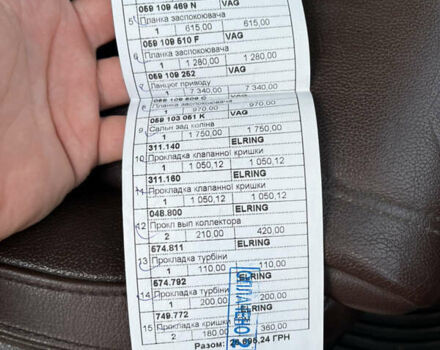 059 109 469 N VAG
5 Планка заспокоювача
1 615,00 615,00
059 109 510 F VAG
6 Планка заспокоювача
1 1 280,00 1 280,00
059 109 252 VAG
7 Ланцюг приводу
1 7 340,00 7 340,00
VAG
8 Планка заспокоювача
1 970,00 970,00
059 103 051 K VAG
9 Сальн зад коліна
1 1 750,00 1 750,00
311.140 ELRING
10 Прокладка клапанної кришки
1 1 050,12 1 050,12
311.160 ELRING
11 Прокладка клапанної кришки
1 1 050,12 1 050,12
048.800 ELRING
12 Прокл вып коллектора
2 210,00 420,00
574.811 ELRING
13 Прокладка турбіни
1 110,00 110,00
574.792 ELRING
14 Прокладка турбіни
1 200,00 200,00
749.772 ELRING
15 Прокладка кришки
2 180,00 360,00
Разом: 695,24 ГРН